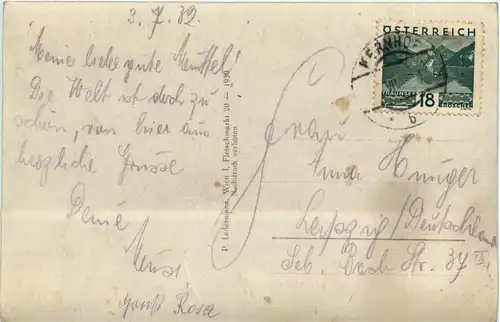 3. 7. 32.
Meine liebe gute Mutter!
Die Welt ist doch zu
schön, von hier aus
herzliche Grüsse
Deine
Rosa
P. Ledermann, Wien I, Fleischmarkt 20 — 1930
Nachdruck verboten
ÖSTERREICH
KERNHOF
18
Frau
Anna Hunger
Leipzig/Deutschland
Seb. Bach Str. 37 III.